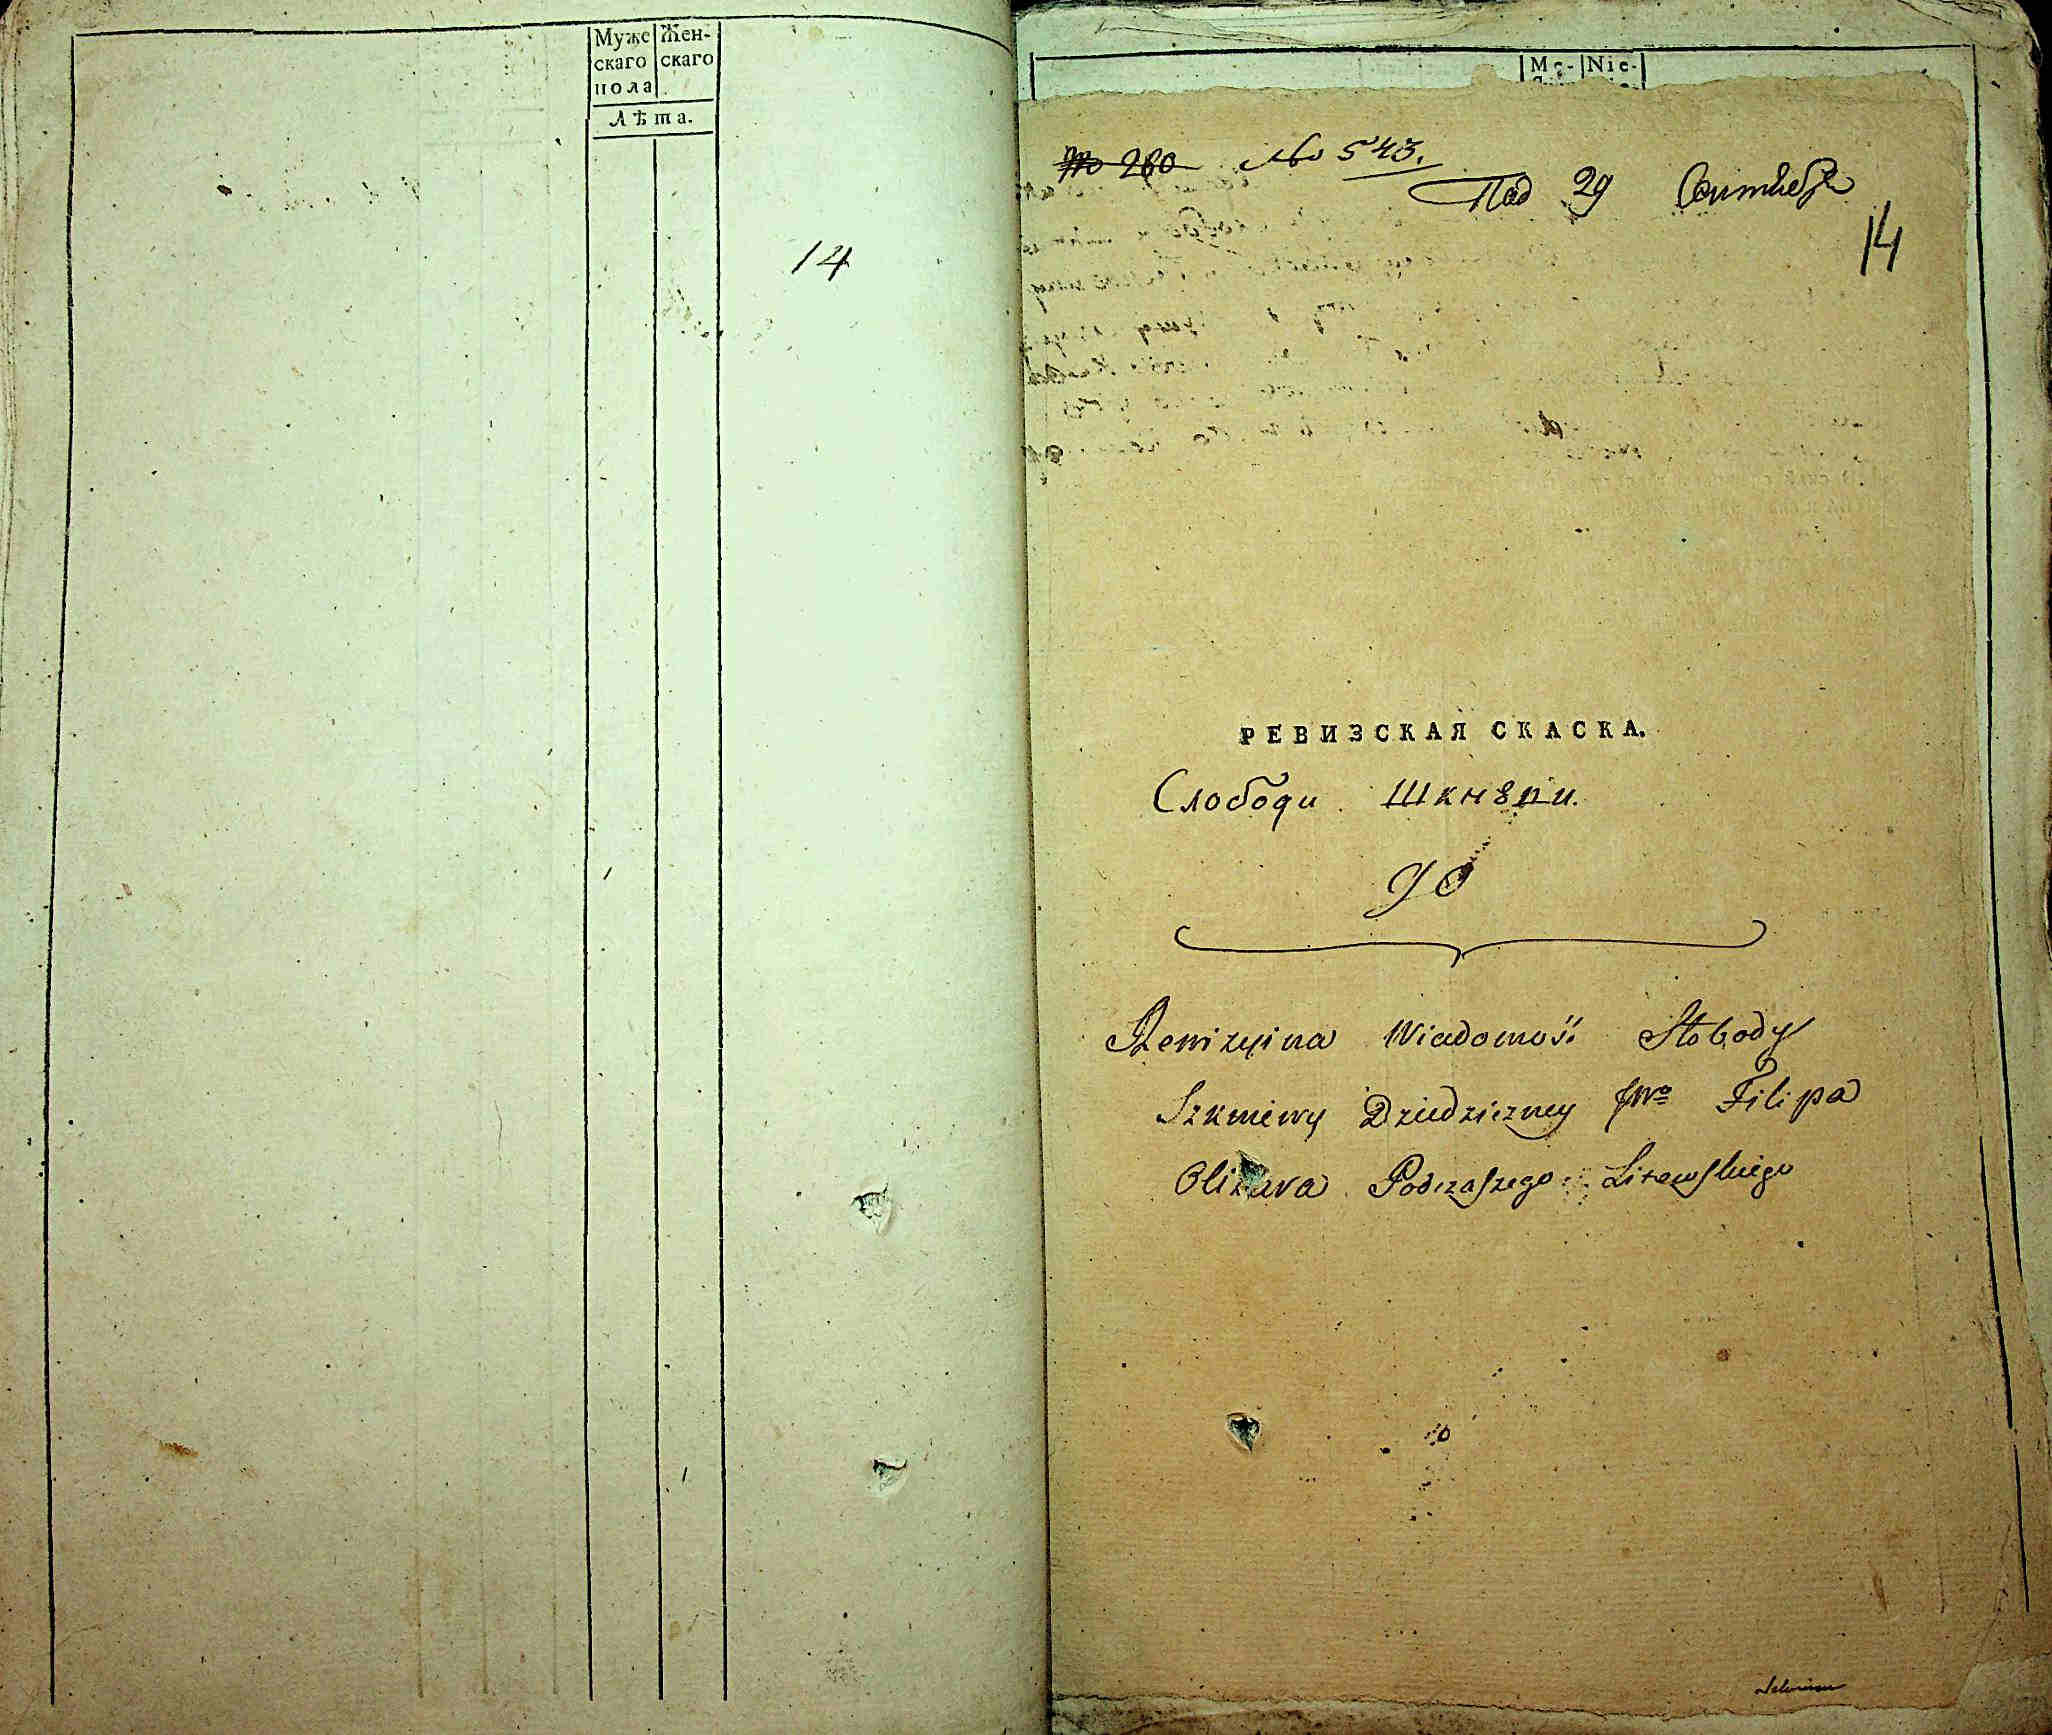 Муже Жен-
скаго скаго
пола
Лѣта.
14
Me- Nie-
№ 260 № 543.
Под 29 Сентября
14
РЕВИЗСКАЯ СКАСКА.
Слободи Шкнѣви.
90
Rewizyina Wiadomość Słobody
Szkniewy Dziedziczney Jmo Filipa
Olizara Podczaszego Litewskiego